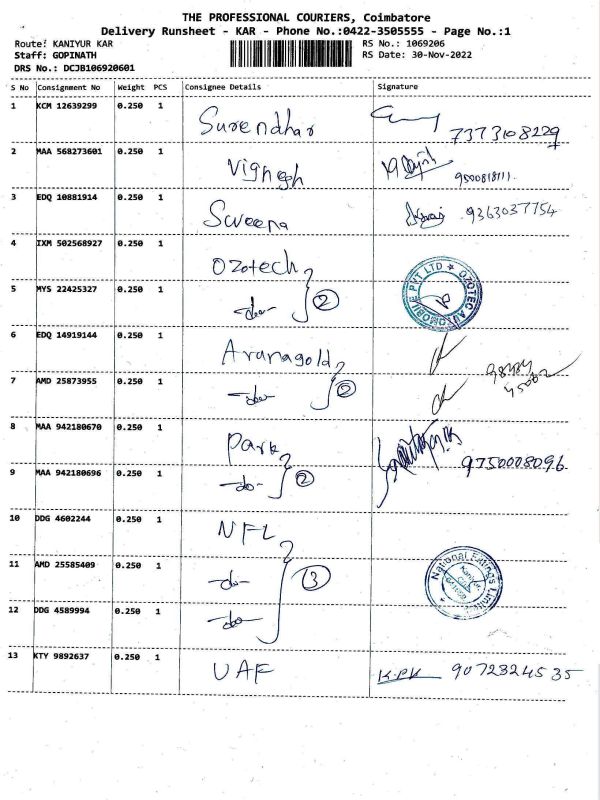 THE PROFESSIONAL COURIERS, Coimbatore
Delivery Runsheet - KAR - Phone No.:0422-3505555 - Page No.:1
Route: KANIYUR KAR RS No.: 1069206
Staff: GOPINATH RS Date: 30-Nov-2022
DRS No.: DCJB106920601
S No Consignment No Weight PCS Consignee Details Signature
1 KCM 12639299 0.250 1 Surendhar 7373108229
2 MAA 568273601 0.250 1 Vignesh 9500818111.
3 EDQ 10881914 0.250 1 Sweena 9363037754
4 IXM 502568927 0.250 1 Ozotech
OZOTEC AUTOMOBILE PVT LTD
5 MYS 22425327 0.250 1 -do- 2
6 EDQ 14919144 0.250 1 Arunagold
7 AMD 25873955 0.250 1 -do- 2
8 MAA 942180670 0.250 1 Park 9750008096
9 MAA 942180696 0.250 1 -do- 2
10 DDG 4602244 0.250 1 NFL
11 AMD 25585409 0.250 1 -do- 3
National Fittings Limited
Kaniyur
12 DDG 4589994 0.250 1 -do-
13 KTY 9892637 0.250 1 UAF K.PK 9072324535